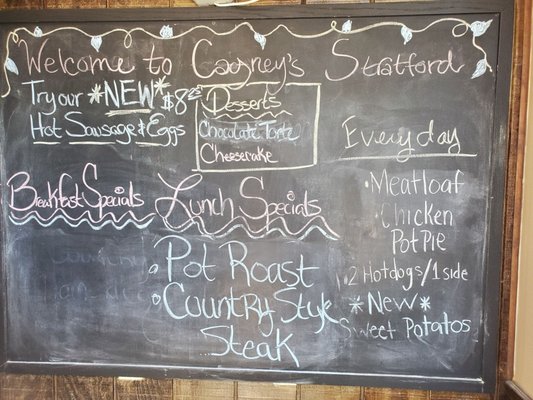 Welcome to Cagney's Stratford
Try our *NEW* $8
Hot Sausage & Eggs
Desserts
Chocolate Torte
Cheesecake
Breakfast Specials
Lunch Specials
• Pot Roast
• Country Style
Steak
Everyday
• Meatloaf
• Chicken
Pot Pie
• 2 Hotdogs/1 side
*New*
Sweet Potatos